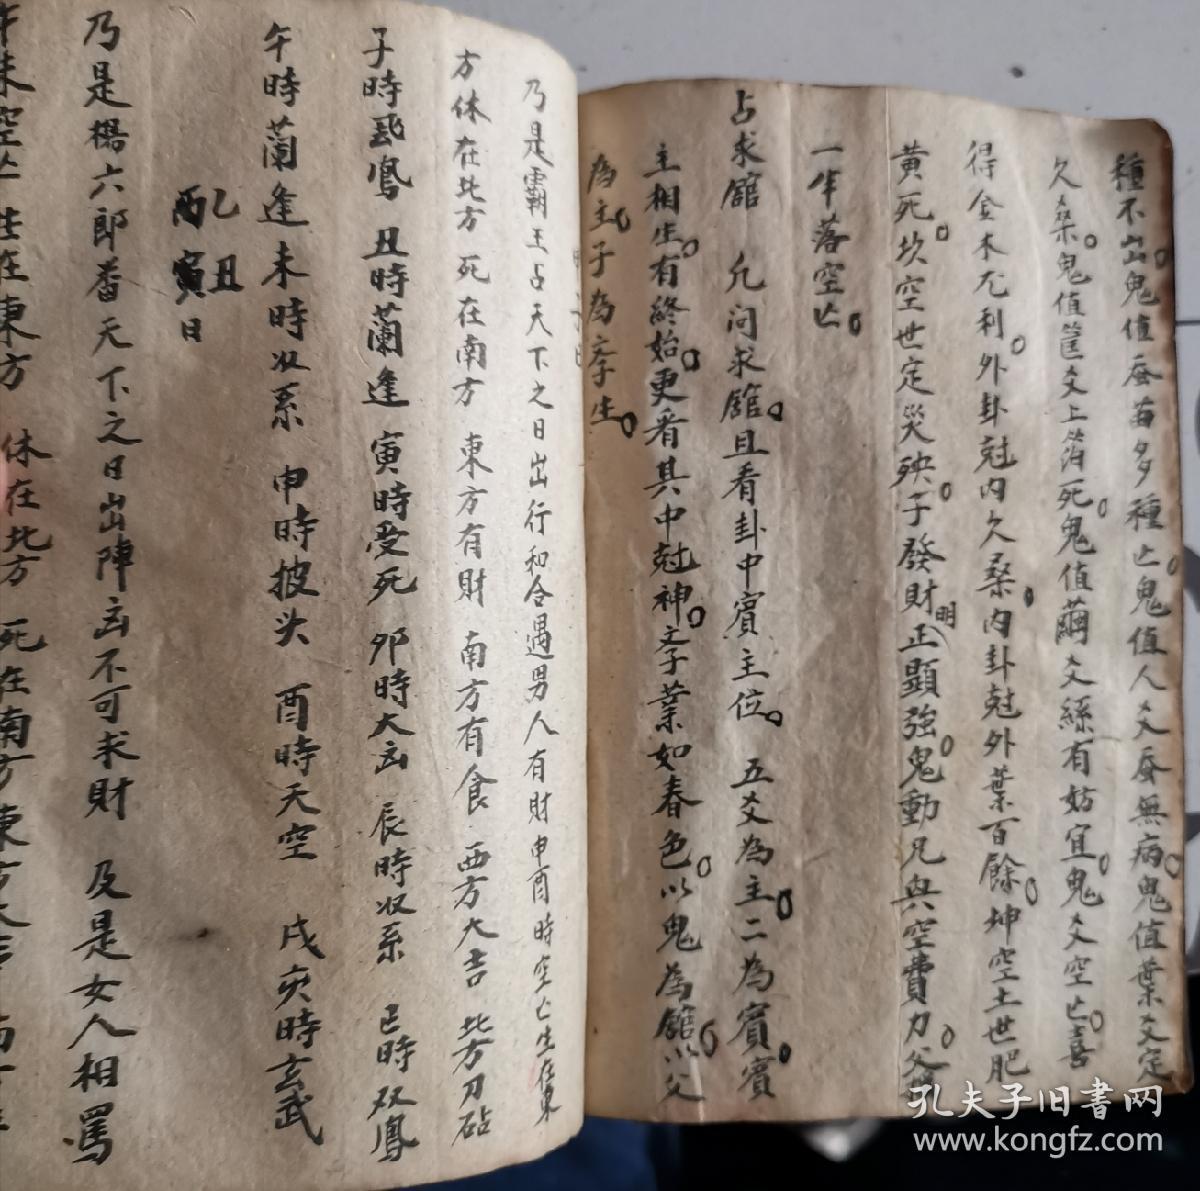 種不出鬼值蚕苗多種亡鬼值人爻蚕無病鬼值葉爻定
欠桑鬼值筐爻上箔死鬼值繭爻絲有妨宜鬼爻空亡喜
得金木尤利外卦尅内欠桑内卦尅外葉百餘坤空土世肥
黄死坎空世定災殃子發財正明顯強鬼動兄興空費力父
一牟落空亡
占求館 凢问求舘且看卦中賓主位 五爻為主二為賓賓
主相生有終始更看其中尅神文子葉如春色以鬼為舘以父
為主子為孝生
乃是霸王占天下之日出行和合遇男人有財申酉時空亡生在東
方休在北方 死在南方 東方有財 南方有食 西方大吉 北方刀砧
子時飛鳳 丑時蘭逢 寅時受死 夘時大凶 辰時奴系 巳時双鳳
午時蘭逢未時奴系 申時披头 酉時天空 戌亥時玄武
乙丑
丙寅日
乃是楊六郎番天下之日出陣凶不可求財 及是女人相罵
午未空亡 生在東方 休在北方 死在南方東方大吉
孔夫子旧書网
www.kongfz.com